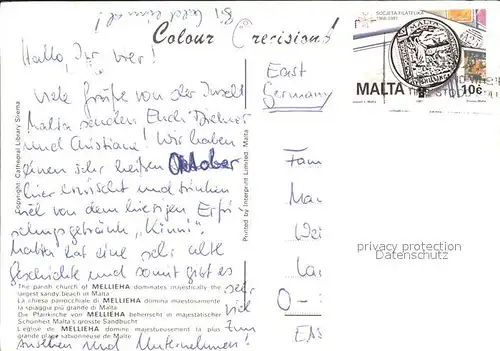 Bis bald einmal!
Colour Precisions
Hallo, Ihr vier!
Viele Grüße von der Insel
Malta senden Euch Dietmar
und Christiane! Wir haben
einen sehr heißen Oktober
hier erwischt und trinken
viel von dem hiesigen Erfri-
schungsgetränk „Kinni".
Malta hat eine sehr alte
Geschichte und somit gibt es
sehr
viel
zum
Ansehen und Unternehmen!
The parish church of MELLIEHA dominates majestically the
largest sandy beach in Malta
La chiesa parrocchiale di MELLIEHA domina maestosamente
la spiaggia più grande di Malta
Die Pfarrkirche von MELLIEHA beherrscht in majestätischer
Schönheit Malta's grosste Sandbucht
L'église de MELLIEHA domine majestueusement la plus
grande plage sabionneuse de Malte
Copyright Cathedral Library Sliema
Printed by Interprint Limited, Malta
East
Germany
SOCJETA FILATELIKA
MALTA
10c
Fam
Ma
Wei
La
O-
EAS
privacy protection
Datenschutz